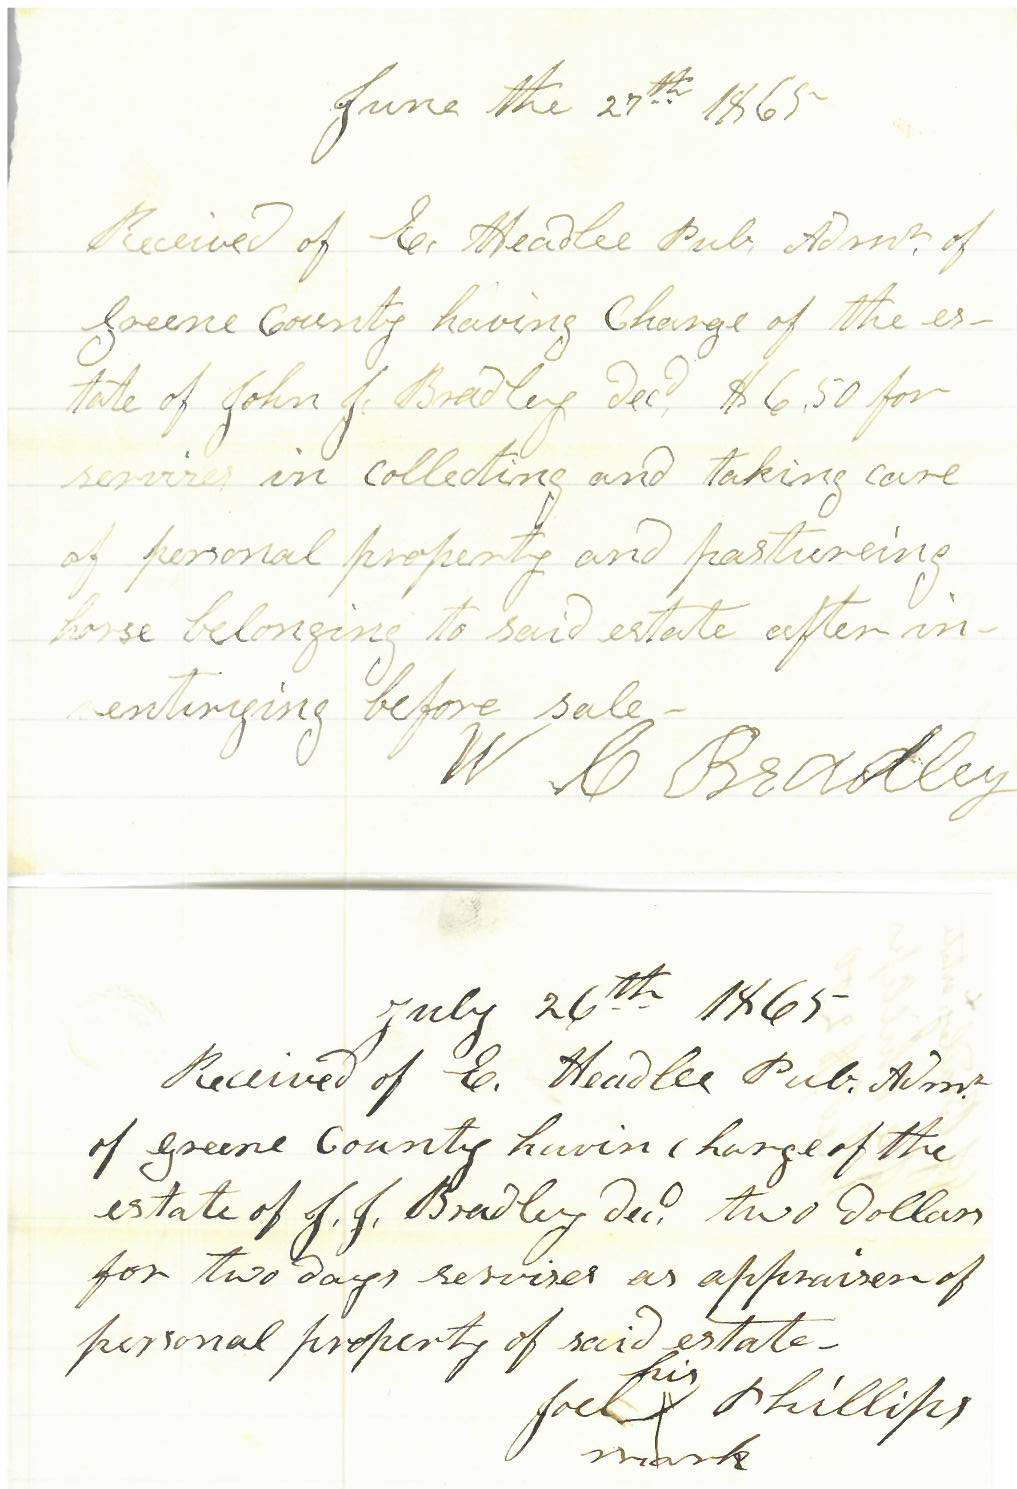 June the 27th 1865
Received of E. Headlee Pub. Admr. of
Greene County having Charge of the es-
tate of John J. Bradley Decd. $6.50 for
servises in collecting and taking care
of personal property and pastureing
horse belonging to said estate after in-
before sale-
W C Bradley
July 26th 1865
Received of E. Headlee Pub. Admr.
of Greene County havin charge of the
estate of J. J. Bradley Decd. two Dollars
for two days servises as appraiser of
personal property of said estate-
his
Joel X Phillips
mark